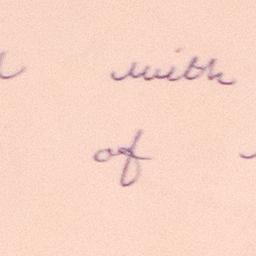 with
of